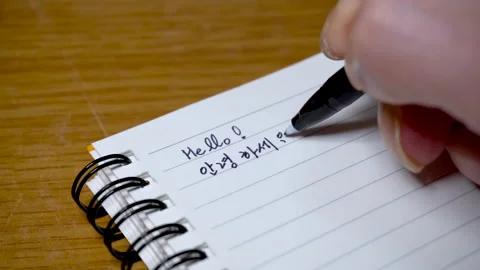 Hello!
안녕 하세